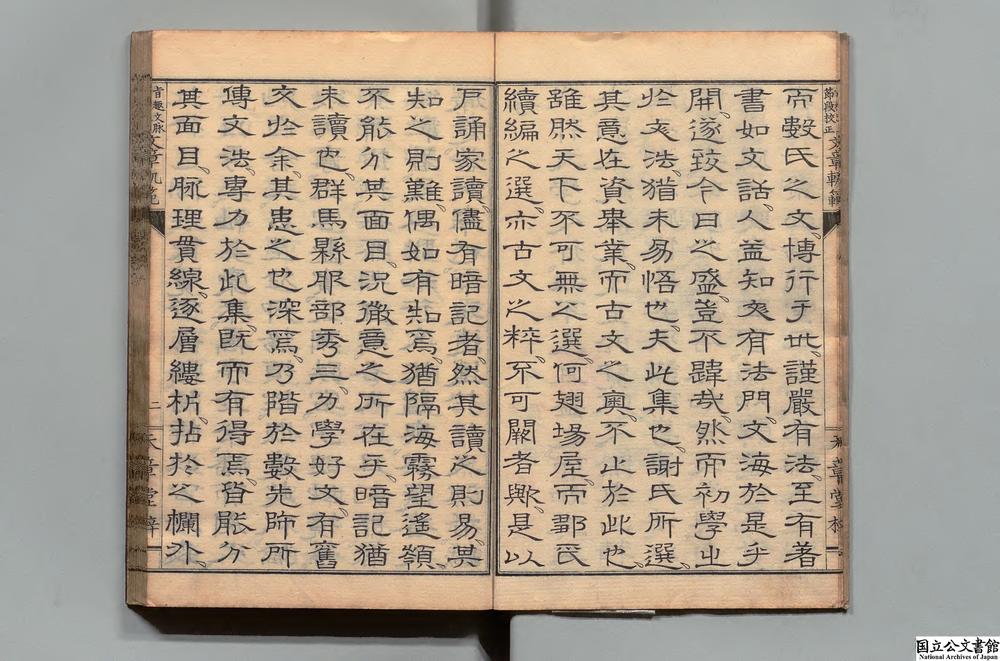 而數氏之文、博行于世、謹嚴有法、至有著
書如文話、人益知文有法門、文海於是乎
開、遂致今日之盛、豈不韙哉、然而初學之
於文法、猶未易悟也、夫此集也、謝氏所選、
其意在資舉業、而古文之奧、不止於此也、
雖然天下不可無之選、何翅場屋、而鄒氏
續編之選、亦古文之粹、不可闕者歟、是以
戶誦家讀、儘有暗記者、然其讀之則易、其
知之則難、偶如有知焉、猶隔海霧望遙嶺、
不能分其面目、況微意之所在乎、暗記猶
未讀也、群馬縣服部秀三、力學好文、有舊
文於余、其患之也深焉、乃階於數先師所
傳文法、專力於此集、既而有得焉、皆能分
其面目、脉理貫線、逐層縷析、拈於之欄外、
文章軌範
二
國立公文書館
National Archives of Japan